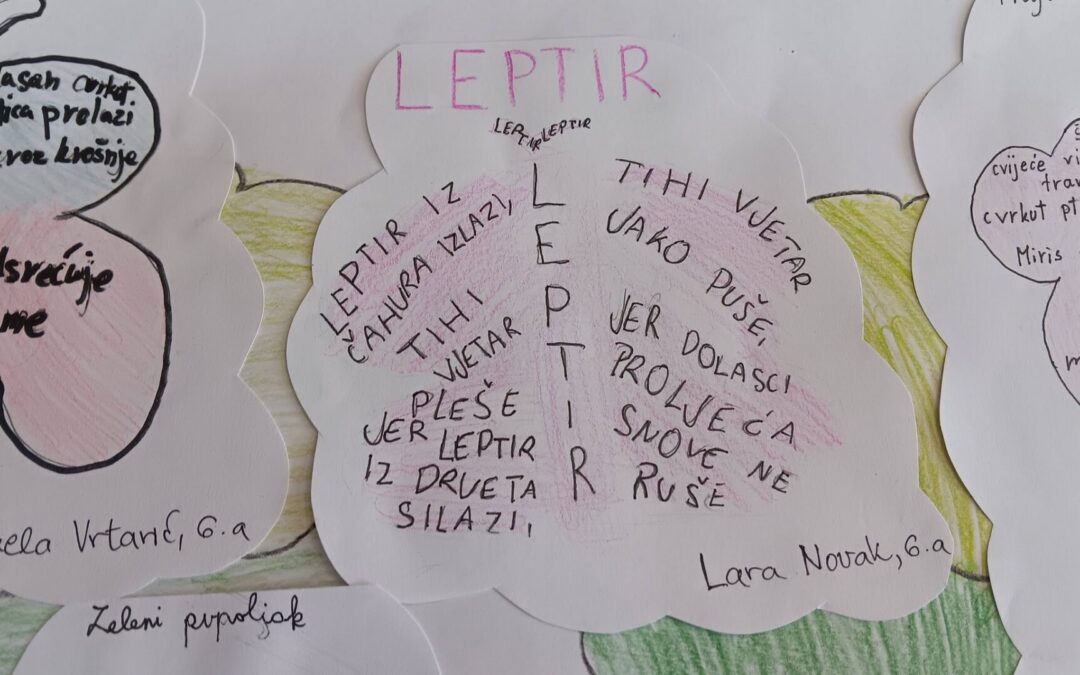 cvrkut
prolazi
kroz krošnje
Usrećuje
me
Vrtarić, 6.a
LEPTIR
LEPTIR LEPTIR
LEPTIR IZ
ČAHURA IZLAZI,
TIHI
VJETAR
PLEŠE
JER LEPTIR
IZ DRVETA
SILAZI,
LEPTIR
TIHI VJETAR
JAKO PUŠE,
JER DOLASCI
PROLJEĆA
SNOVE NE
RUŠE
Lara Novak, 6.a
Zeleni pupoljak
cvijeće
cvrkut
Miris